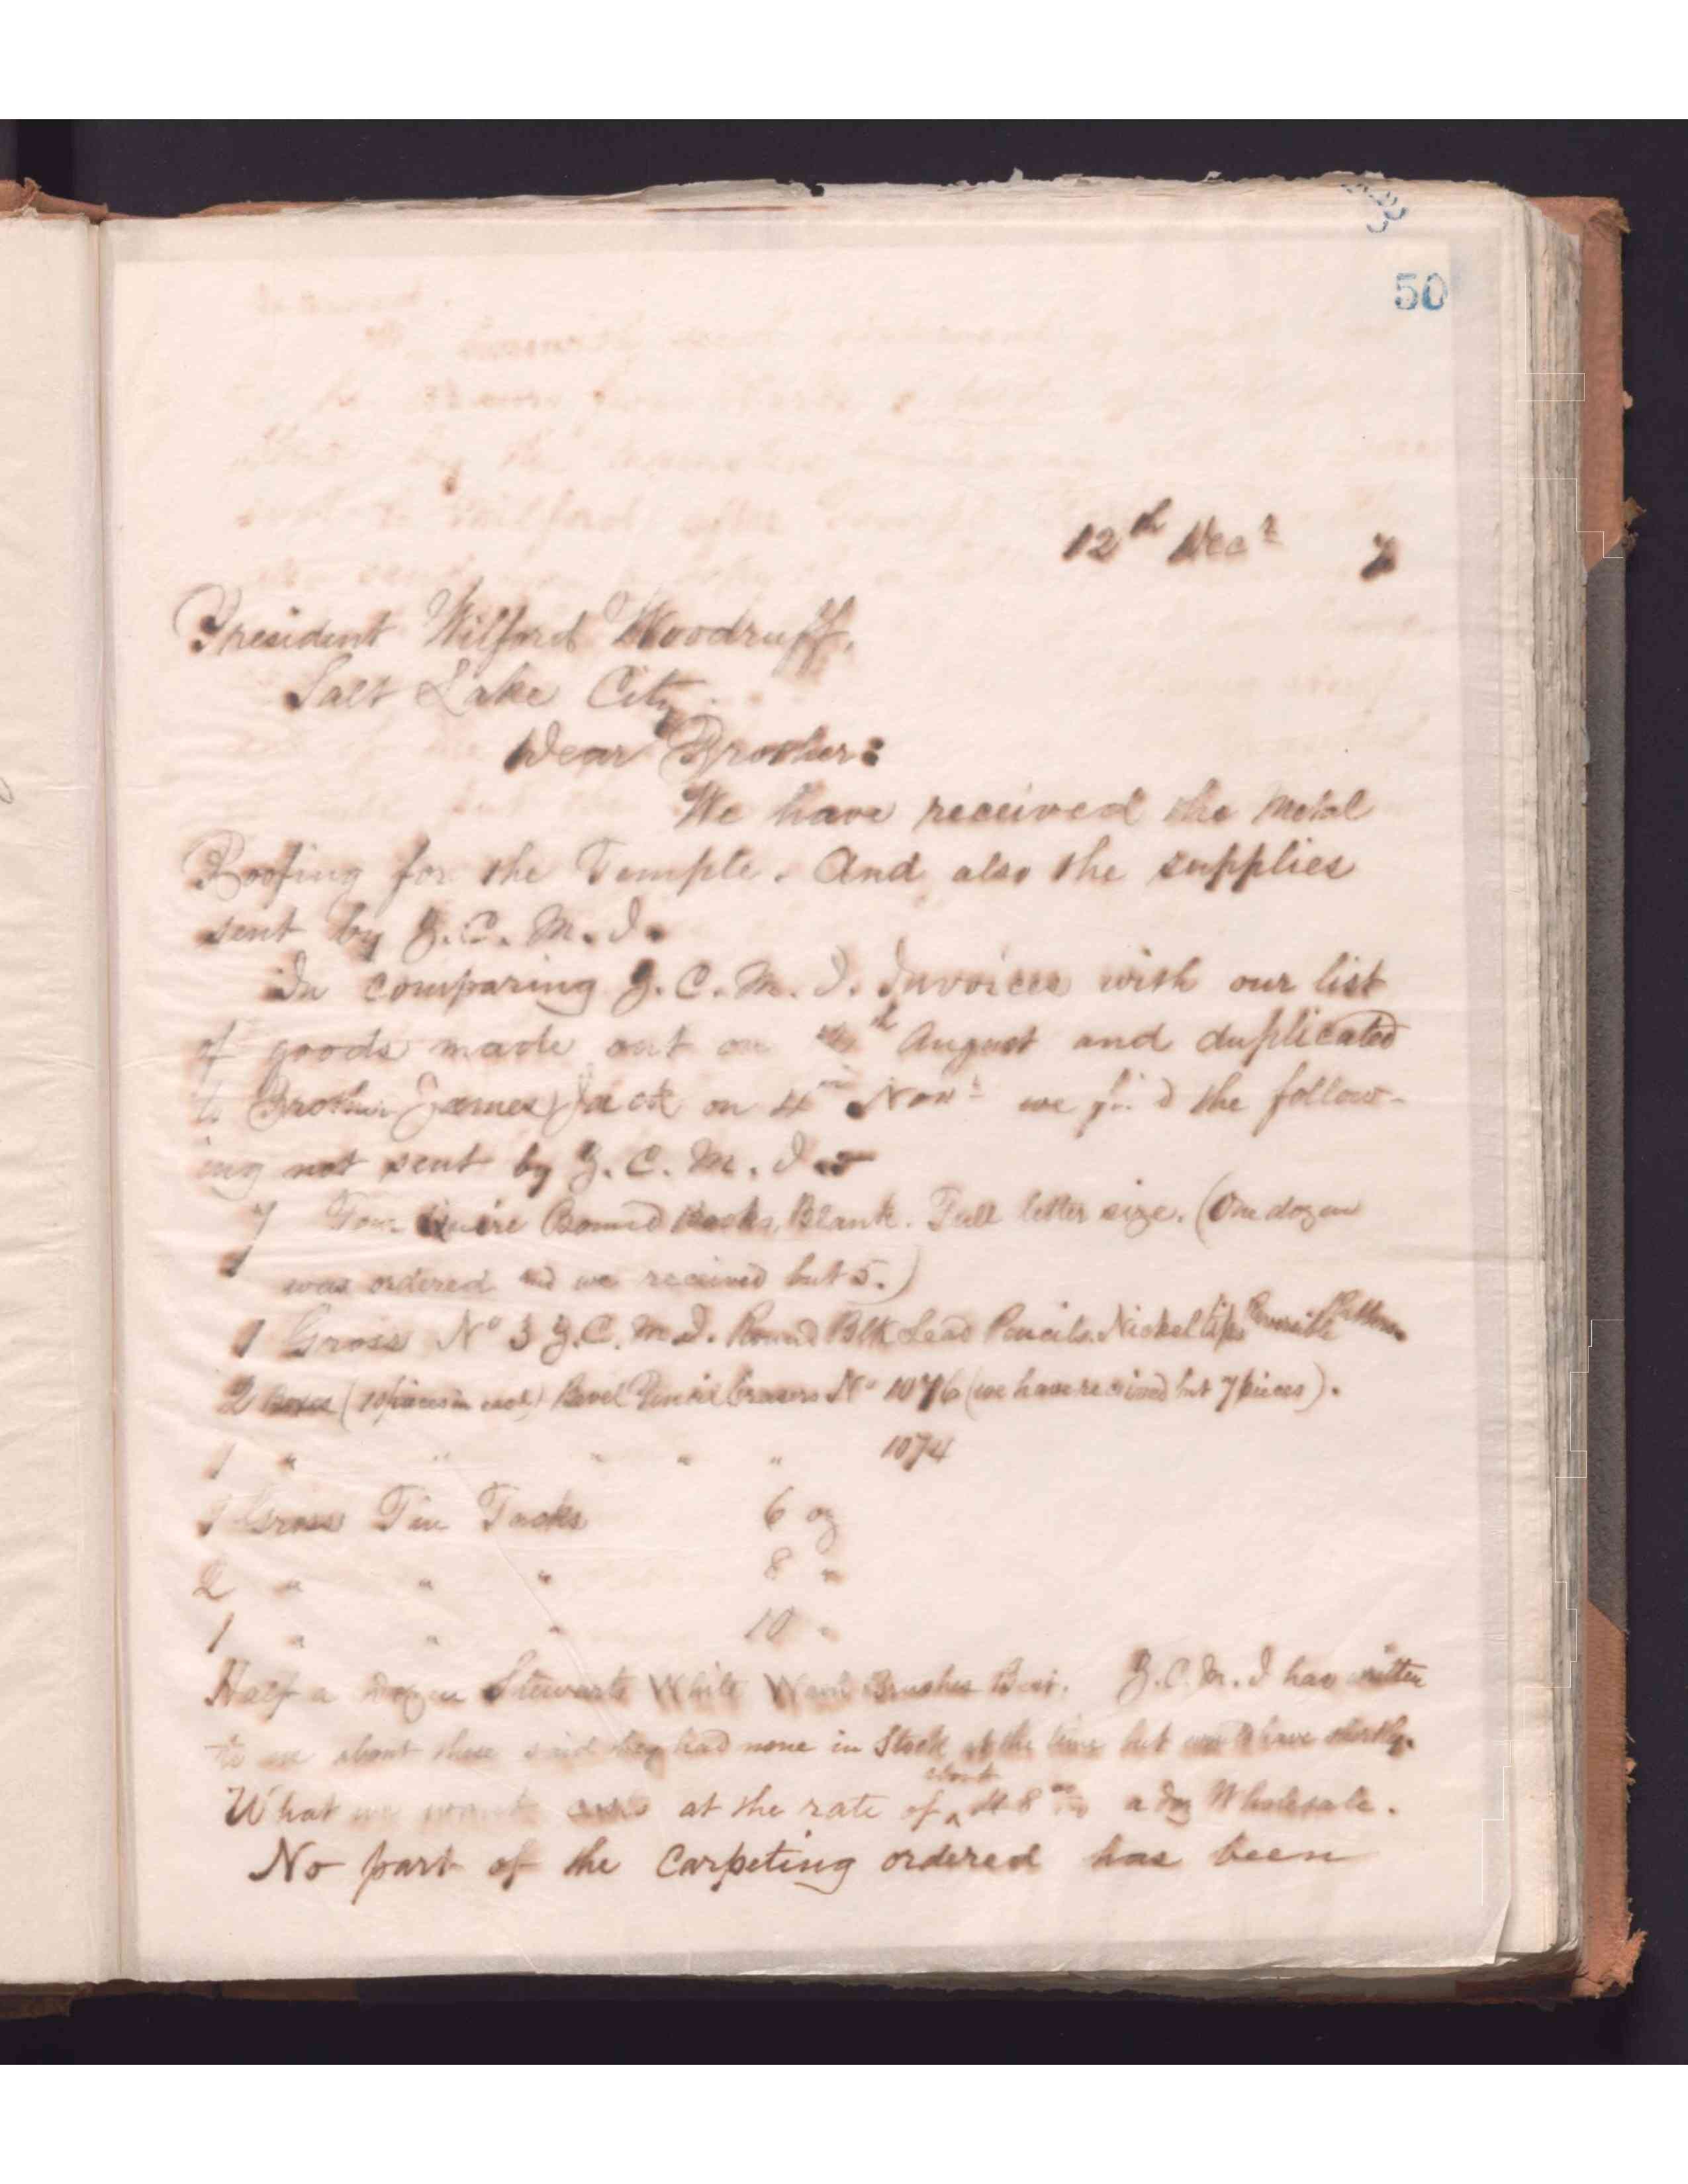 50
12th Decr 7
President Wilford Woodruff,
Salt Lake City.
Dear Brother:
We have received the Metal
Roofing for the Temple. And also the supplies
sent by Z.C.M.I.
In comparing Z.C.M.I. Invoices with our list
of goods made out on August and duplicated
to Brother James Jack on 4th Novr we find the follow-
ing not sent by Z.C.M.I.
7 Four Quire Bound Books, Blank. Full letter size. (One dozen
was ordered and we received but 5.)
1 Gross No 3 Z.C.M.I. Round Blk Lead Pencils. Nickel tips Reversible
2 Boxes (10 pieces in each) Bevel Pencil Erasers No 1076 (we have received but 7 pieces).
1 " " " " " 1074
1 Gross Tin Tacks 6 oz
2 " " " 8 "
1 " " " 10 "
Half a Dozen Stewarts White Wash Brushes Best. Z.C.M.I has written
to me about these said they had none in Stock at the time but would have shortly.
What we want are at the rate of about 48 a doz Wholesale.
No part of the Carpeting ordered has been